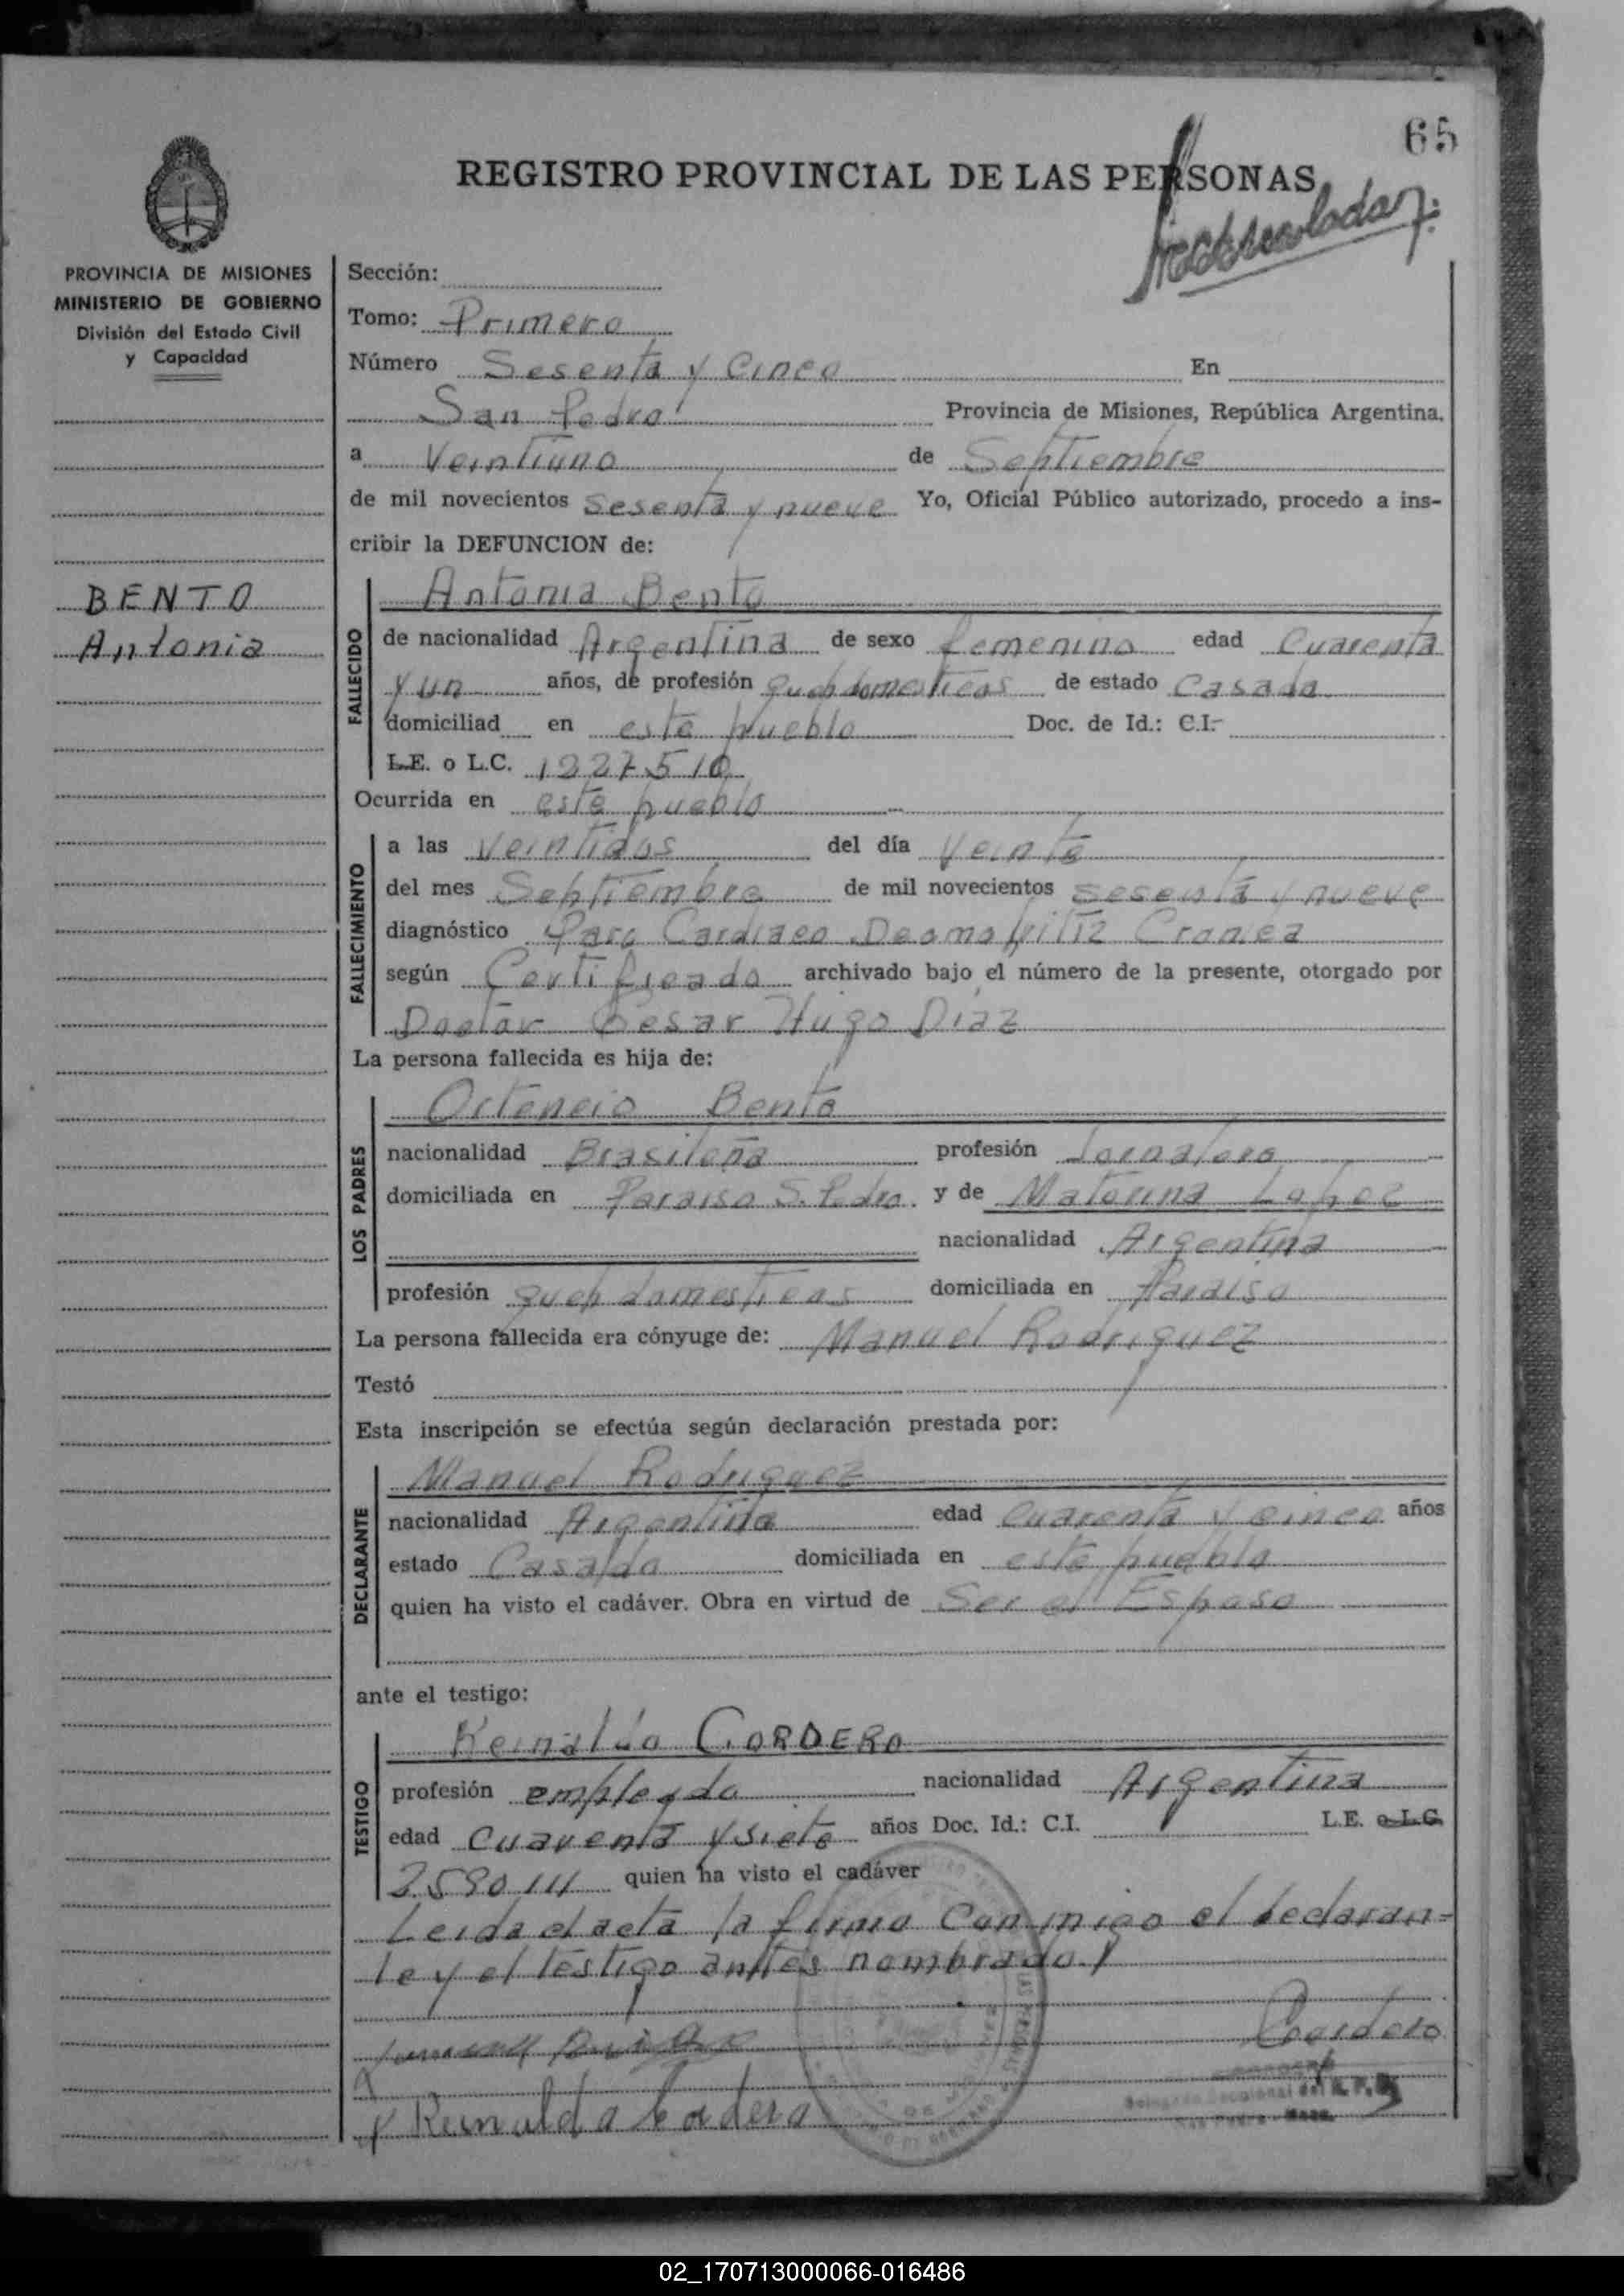 65
REGISTRO PROVINCIAL DE LAS PERSONAS
PROVINCIA DE MISIONES
MINISTERIO DE GOBIERNO
División del Estado Civil
y Capacidad
BENTO
Antonia
Sección:
Tomo: Primero
Número Sesenta y Cinco En
San Pedro Provincia de Misiones, República Argentina.
a Veintiuno de Septiembre
de mil novecientos sesenta y nueve Yo, Oficial Público autorizado, procedo a ins-
cribir la DEFUNCION de:
FALLECIDO
Antonia Bento
de nacionalidad Argentina de sexo femenino edad Cuarenta
y un años, de profesión queh domesticos de estado Casada
domiciliad en este pueblo Doc. de Id.: C.I.
L.E. o L.C. 1227510
Ocurrida en este pueblo
FALLECIMIENTO
a las veintidos del día Veinte
del mes Septiembre de mil novecientos sesenta y nueve
diagnóstico Paro Cardiaco
según Certificado archivado bajo el número de la presente, otorgado por
Doctor Cesar Hugo Diaz
La persona fallecida es hija de:
LOS PADRES
Ortencio Bento
nacionalidad Brasileña profesión Jornalero
domiciliada en Paraiso S. Pedro y de Matorina Lopez
nacionalidad Argentina
profesión queh domesticos domiciliada en Paraiso
La persona fallecida era cónyuge de: Manuel Rodriguez
Testó
Esta inscripción se efectúa según declaración prestada por:
DECLARANTE
Manuel Rodriguez
nacionalidad Argentina edad Cuarenta y cinco años
estado Casado domiciliada en este pueblo
quien ha visto el cadáver. Obra en virtud de Ser el Esposo
ante el testigo:
TESTIGO
Reinaldo CORDERO
profesión empleado nacionalidad Argentina
edad Cuarenta y siete años Doc. Id.: C.I. L.E. o L.C.
quien ha visto el cadáver
Leida el acta la firma Conmigo el declaran=
te y el testigo antes nombrado.
Cordero
02_170713000066-016486